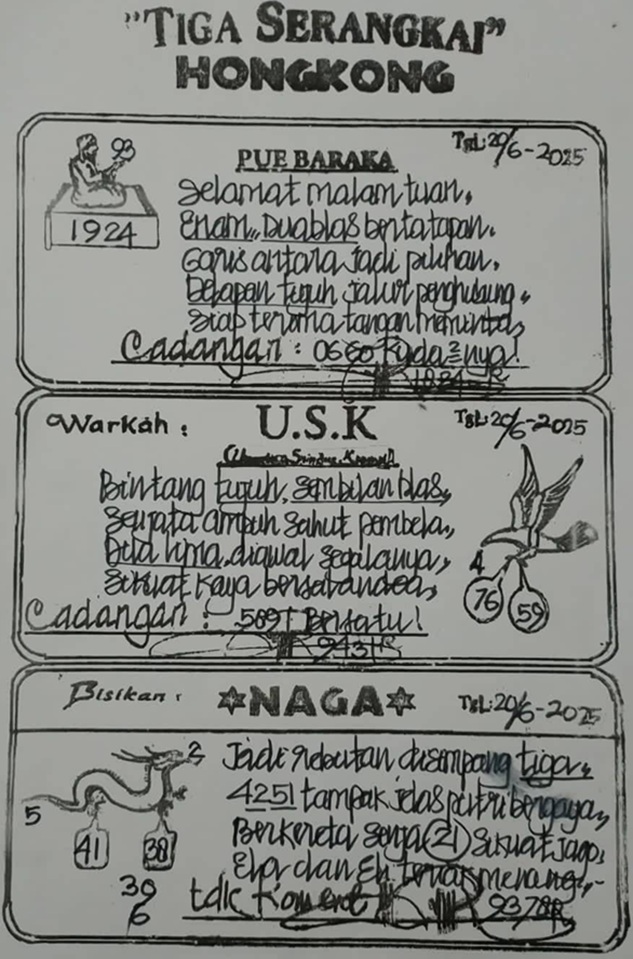 "TIGA SERANGKAI"
HONGKONG
93
1924
PUE BARAKA
TGL: 20/6-2025
Selamat malam tuan,
Enam,, Duablas bertatapan.
Garis antara jadi pilihan.
Delapan tujuh jalur penghubung,
Siap terima tangan meminta,
Cadangan : 0660 Kuda 2nya!
Warkah :
U.S.K
TGL: 20/6-2025
Bintang tujuh, sembilan blas,
Senjata ampuh sahut pembela,
Bila lima diawal segalanya,
Sikuat kaya
Cadangan : 5891 Bersatu!
4
76
59
Bisikan :
NAGA
TGL: 20/6-2025
2
5
41
38
39
6
Jadi rebutan disimpang tiga,
4251 tampak jelas putri bergaya,
Berkereta senja (21) sikuat jago,
Ekor dan menang,
tdk
9378R